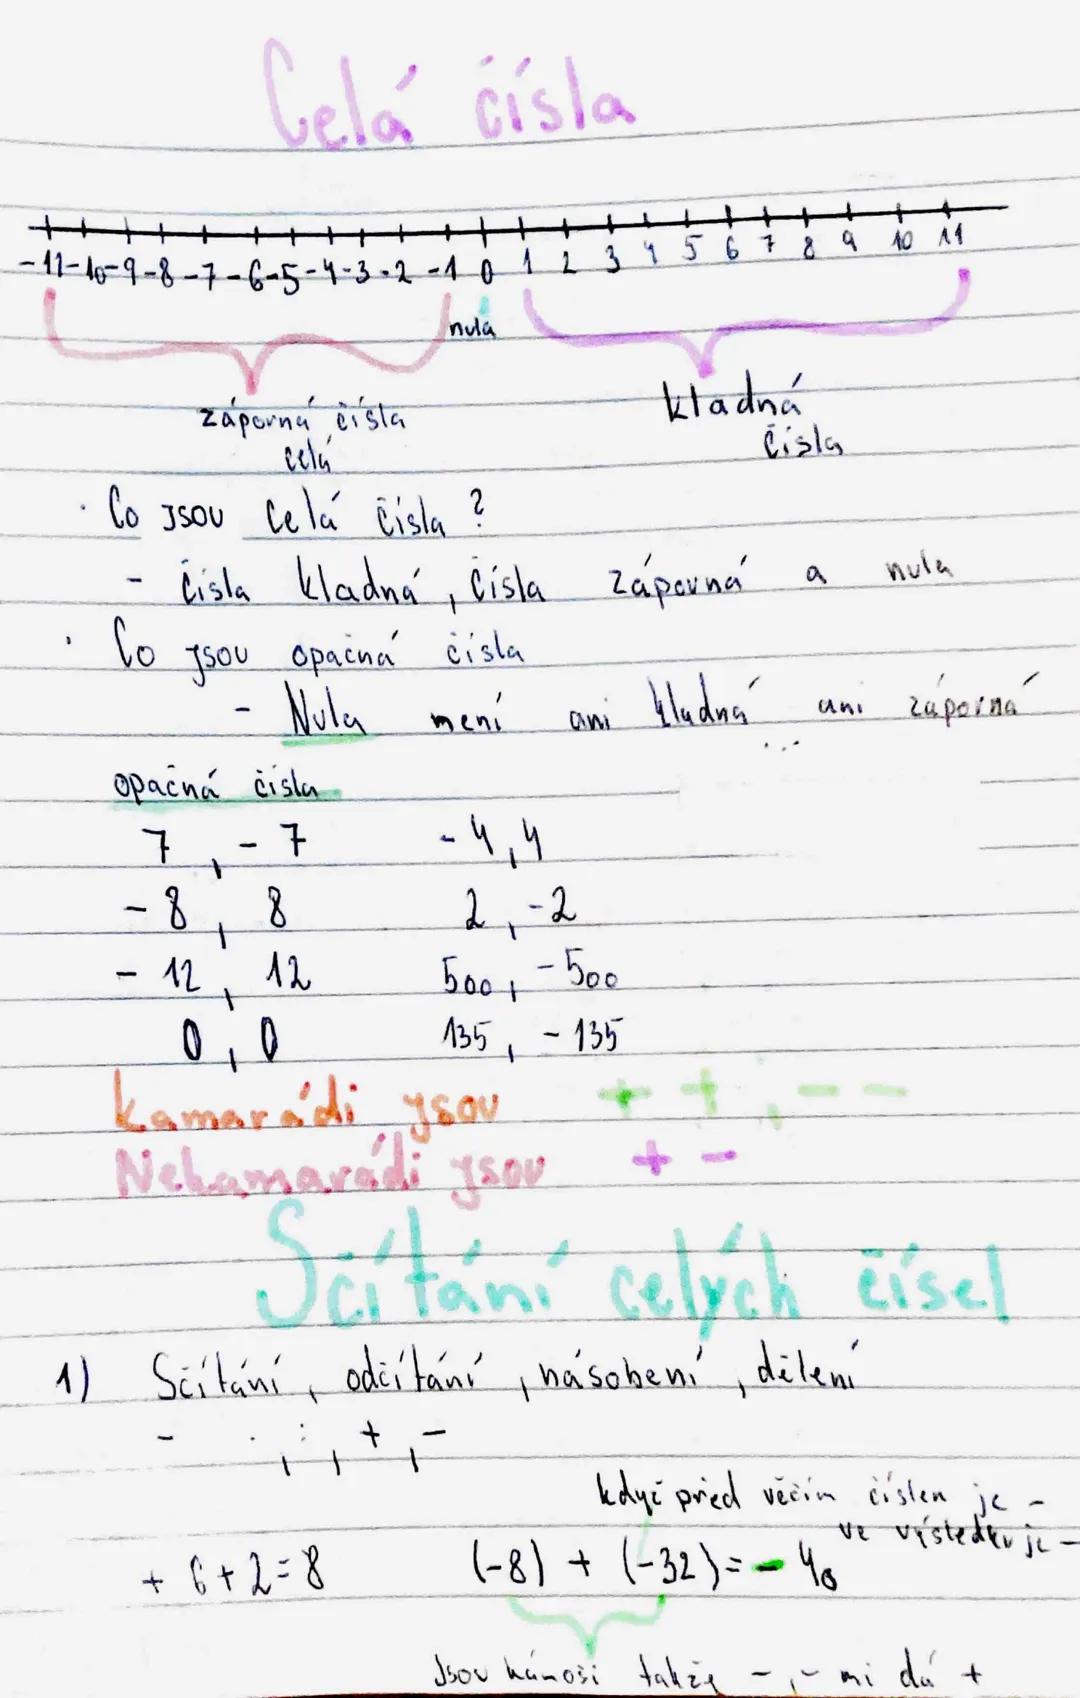 Celá čísla
-11-10-9-8-7-6-5-4-3-2 -1 0 1 2 3 4 5 6 7 8 9 10 11
nula
záporná čísla
celá
kladná
čísla
· Co JSOU Celá čísla ?
- Čísla kladná, Čísla záporná a nula
· Co jsou opačná čísla
- Nula není ani kladná ani záporná
opačná čísla
7, -7 -4, 4
-8, 8 2, -2
-12, 12 500, -500
0, 0 135, -135
kamarádi jsou + +, - -
Nekamarádi jsou + -
Sčítání celých čísel
1) Sčítání, odčítání, násobení, dělení
- ·, :, +, -
když před věčím číslem je -
ve výsledku je -
+ 6+2=8 (-8) + (-32)= - 40
Jsou takže -, - mi dá +